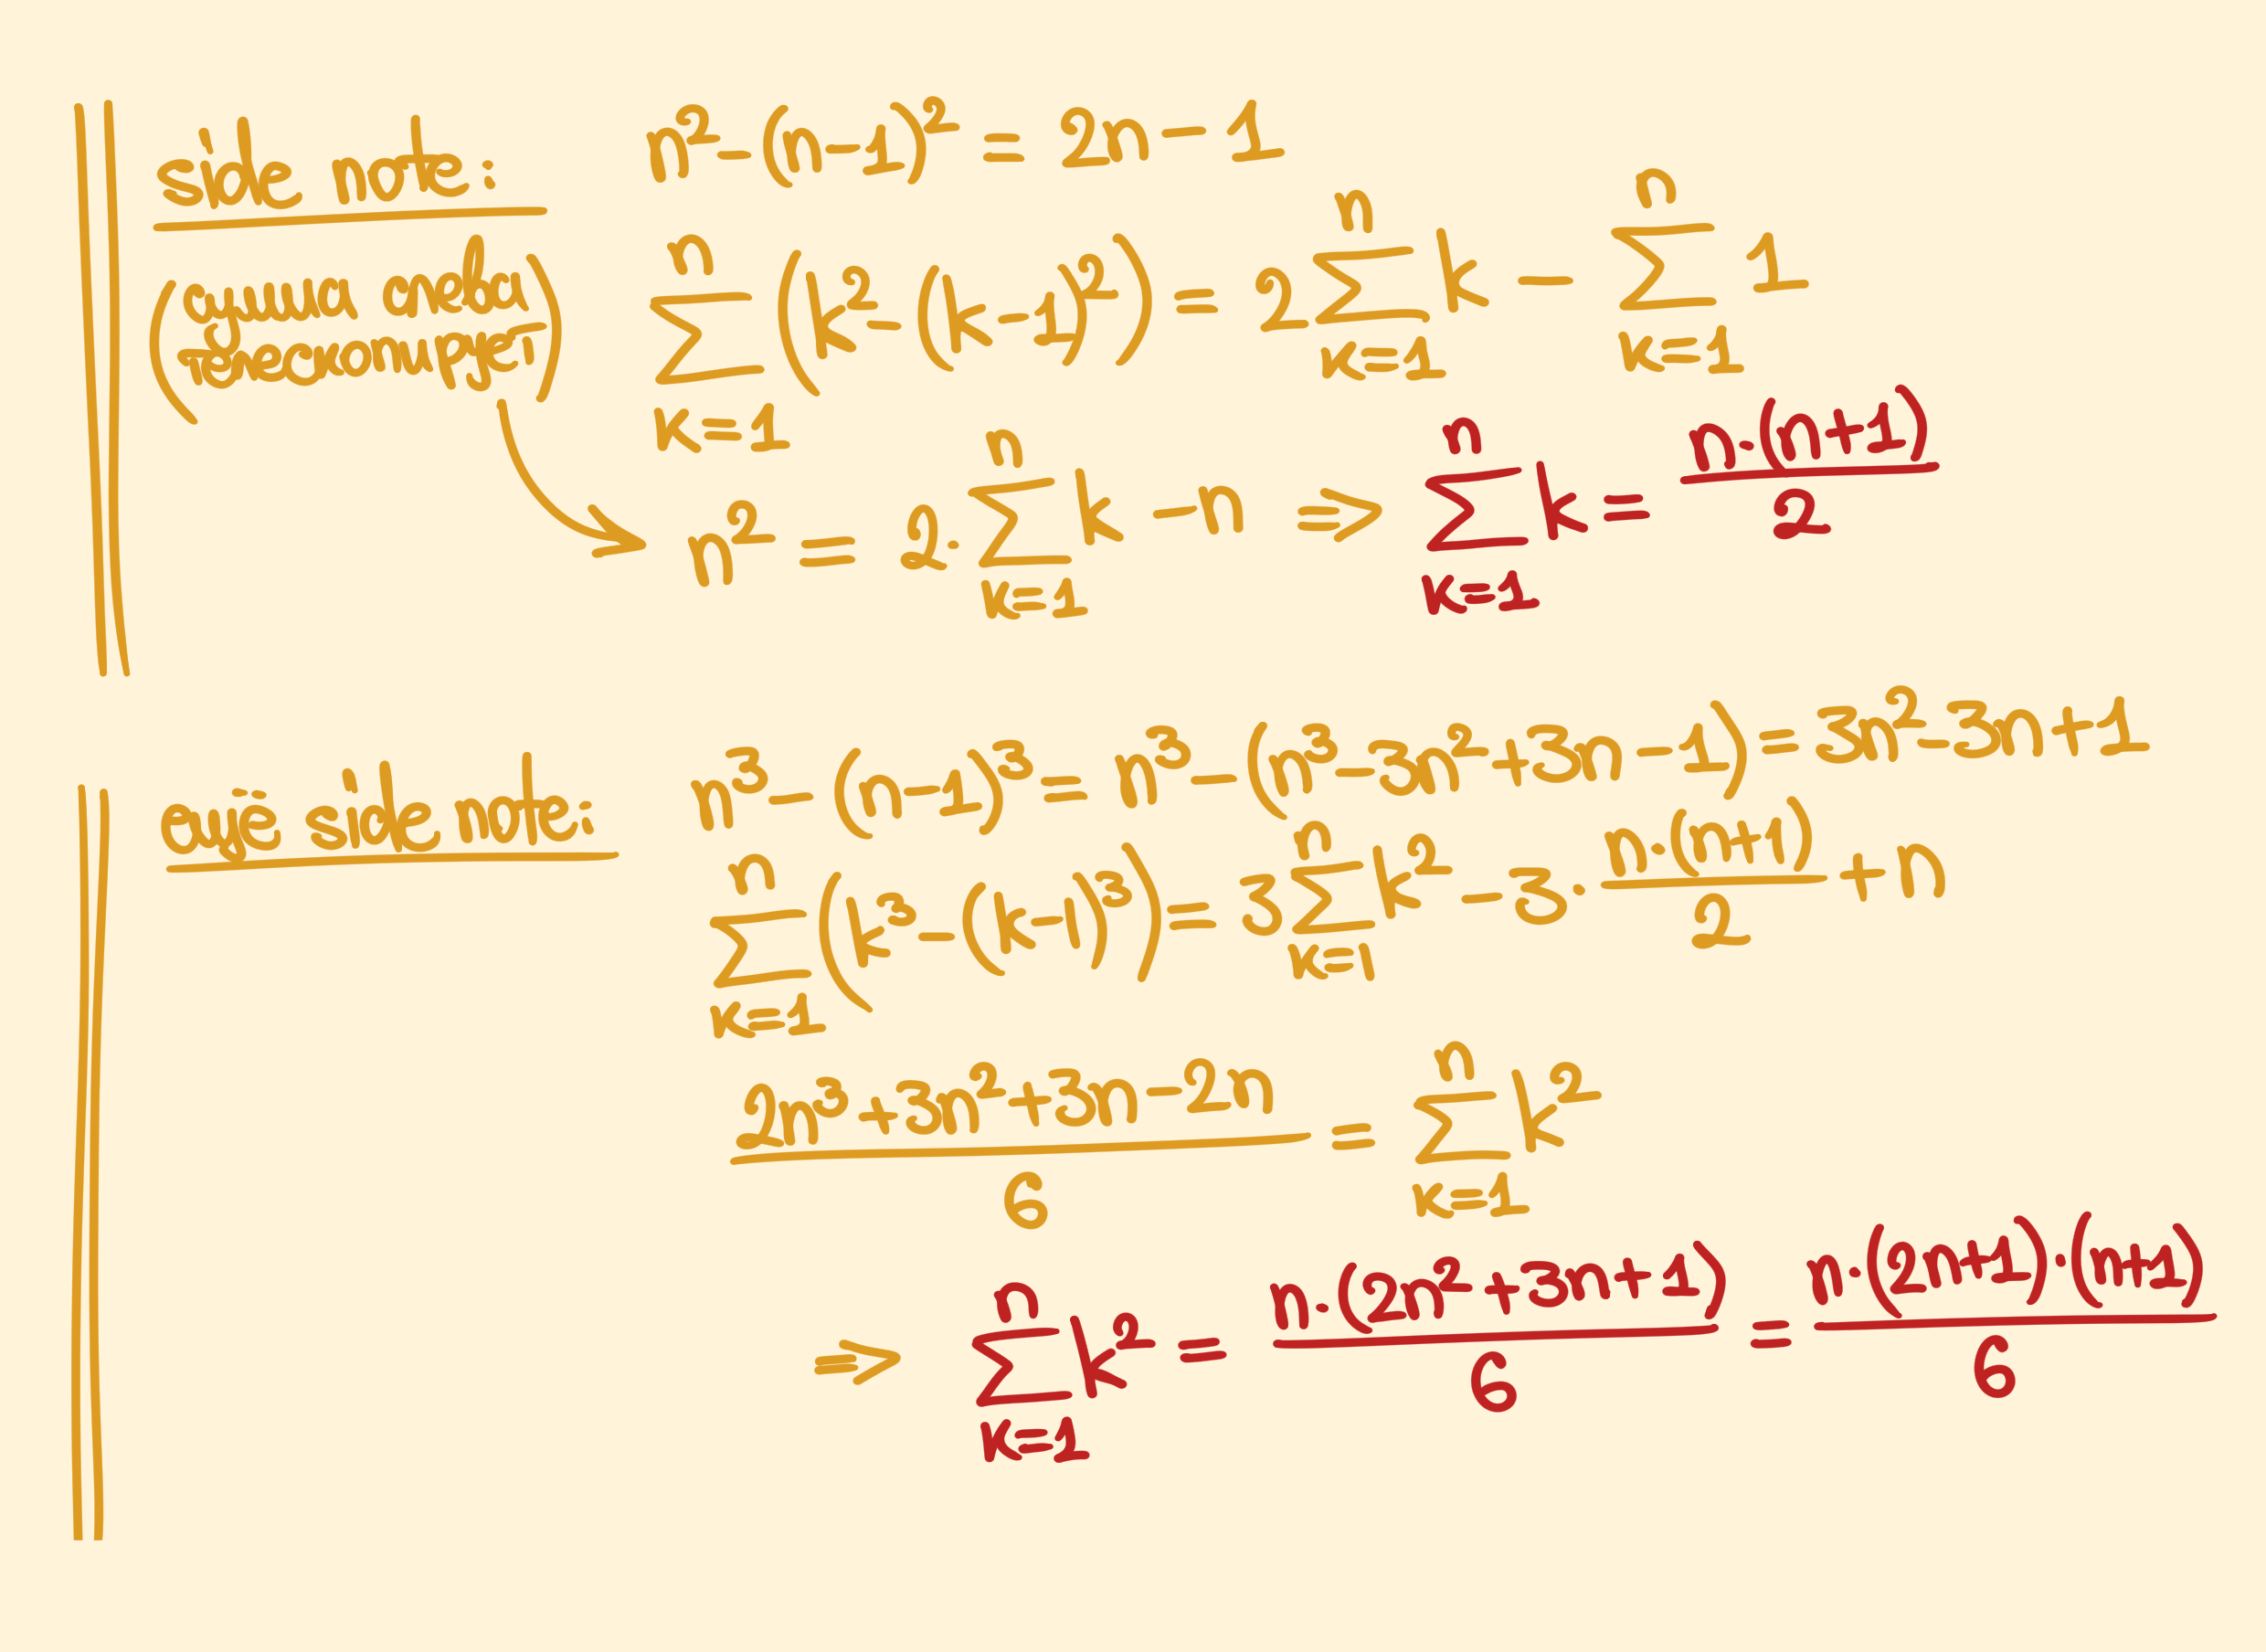 side note:
n² - (n-1)² = 2n - 1
(сумма слева
∑_{k=1}^{n} (k² - (k-1)²) = 2∑_{k=1}^{n} k - ∑_{k=1}^{n} 1
n² = 2·∑_{k=1}^{n} k - n ⇒ ∑_{k=1}^{n} k = n·(n+1)/2
ещё side note:
n³ - (n-1)³ = n³ - (n³-3n²+3n-1) = 3n²-3n+1
∑_{k=1}^{n} (k³ - (k-1)³) = 3∑_{k=1}^{n} k² - 3·n·(n+1)/2 + n
(2n³+3n²+3n-2n)/6 = ∑_{k=1}^{n} k²
⇒ ∑_{k=1}^{n} k² = n·(2n²+3n+1)/6 = n·(2n+1)·(n+1)/6